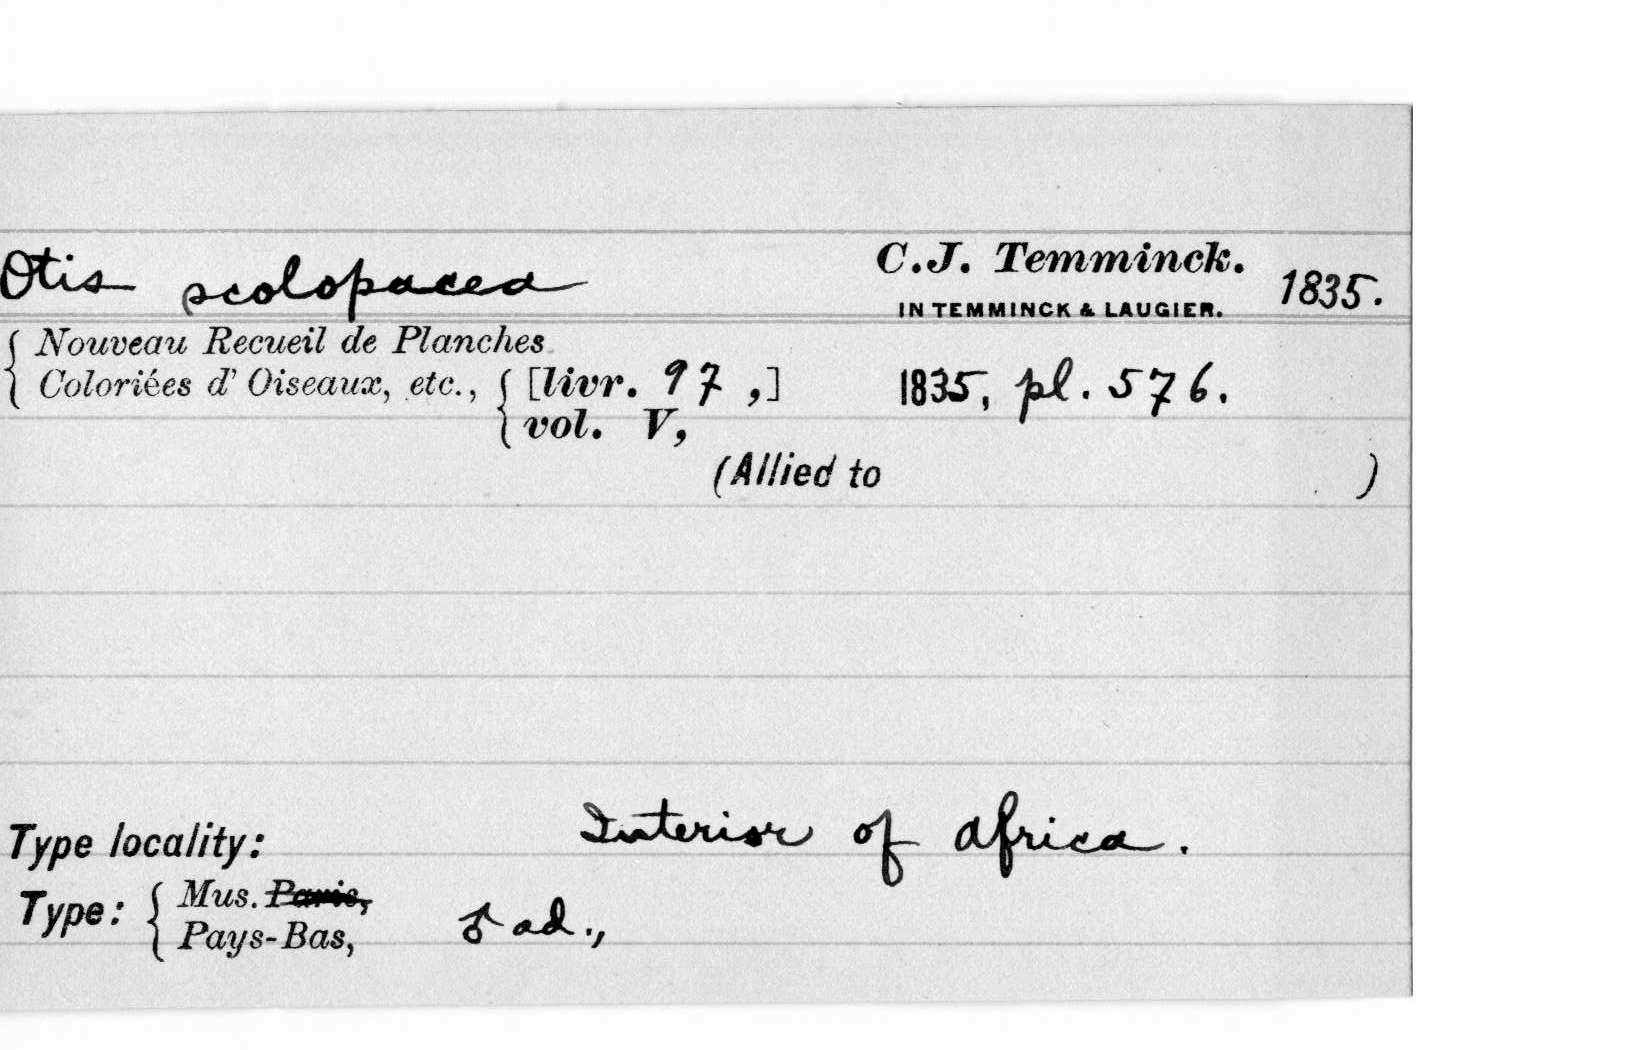 Otis scolopacea C.J. Temminck. 1835.
IN TEMMINCK & LAUGIER.
Nouveau Recueil de Planches
Coloriées d' Oiseaux, etc., [livr. 97 ,] 1835, pl. 576.
vol. V,
(Allied to )
Type locality: Interior of Africa.
Type: Mus. Paris,
Pays-Bas, ♂ ad.,